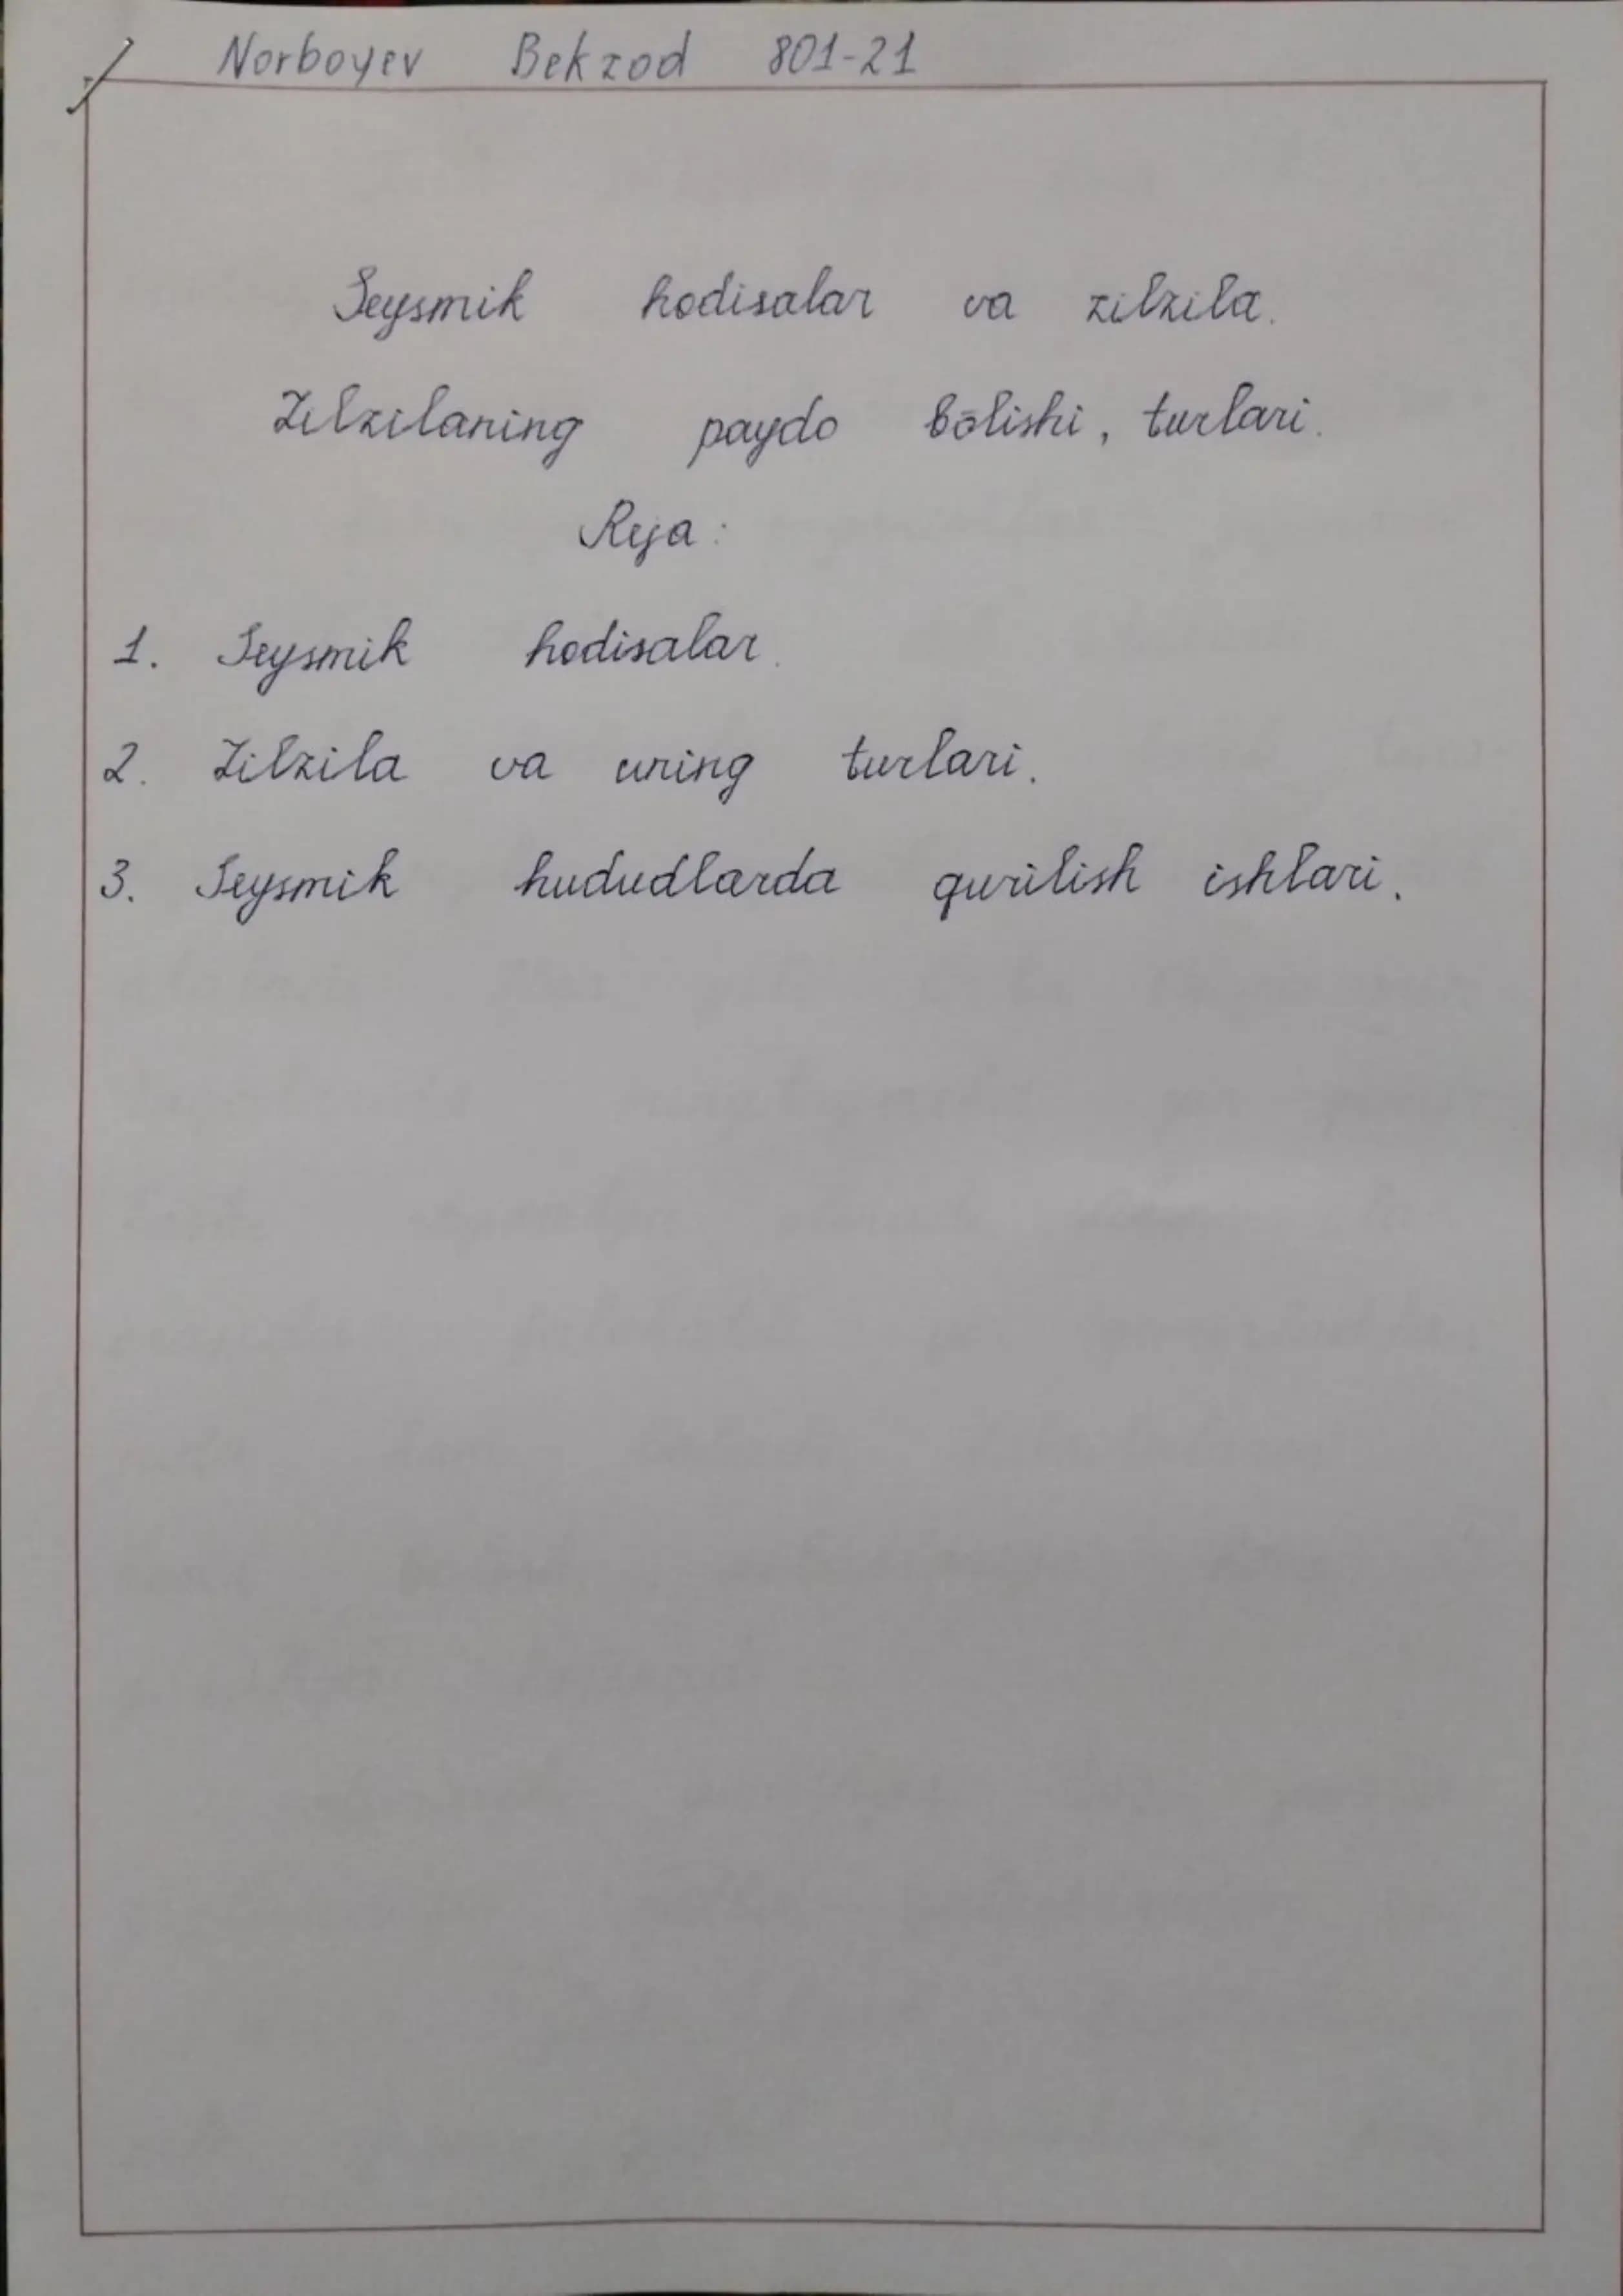 Norboyev Bekzod 801-21
Seysmik hodisalar va zilzila.
Zilzilaning paydo bōlishi, turlari.
Reja:
1. Seysmik hodisalar.
2. Zilzila va uning turlari.
3. Seysmik hududlarda qurilish ishlari.